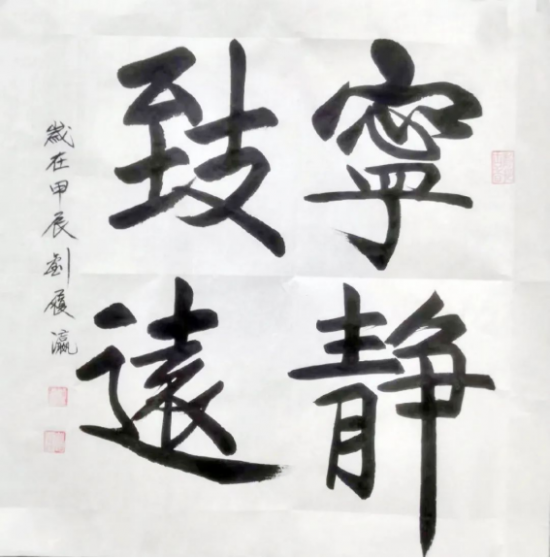 寧靜
致遠
歲在甲辰劉展瀛